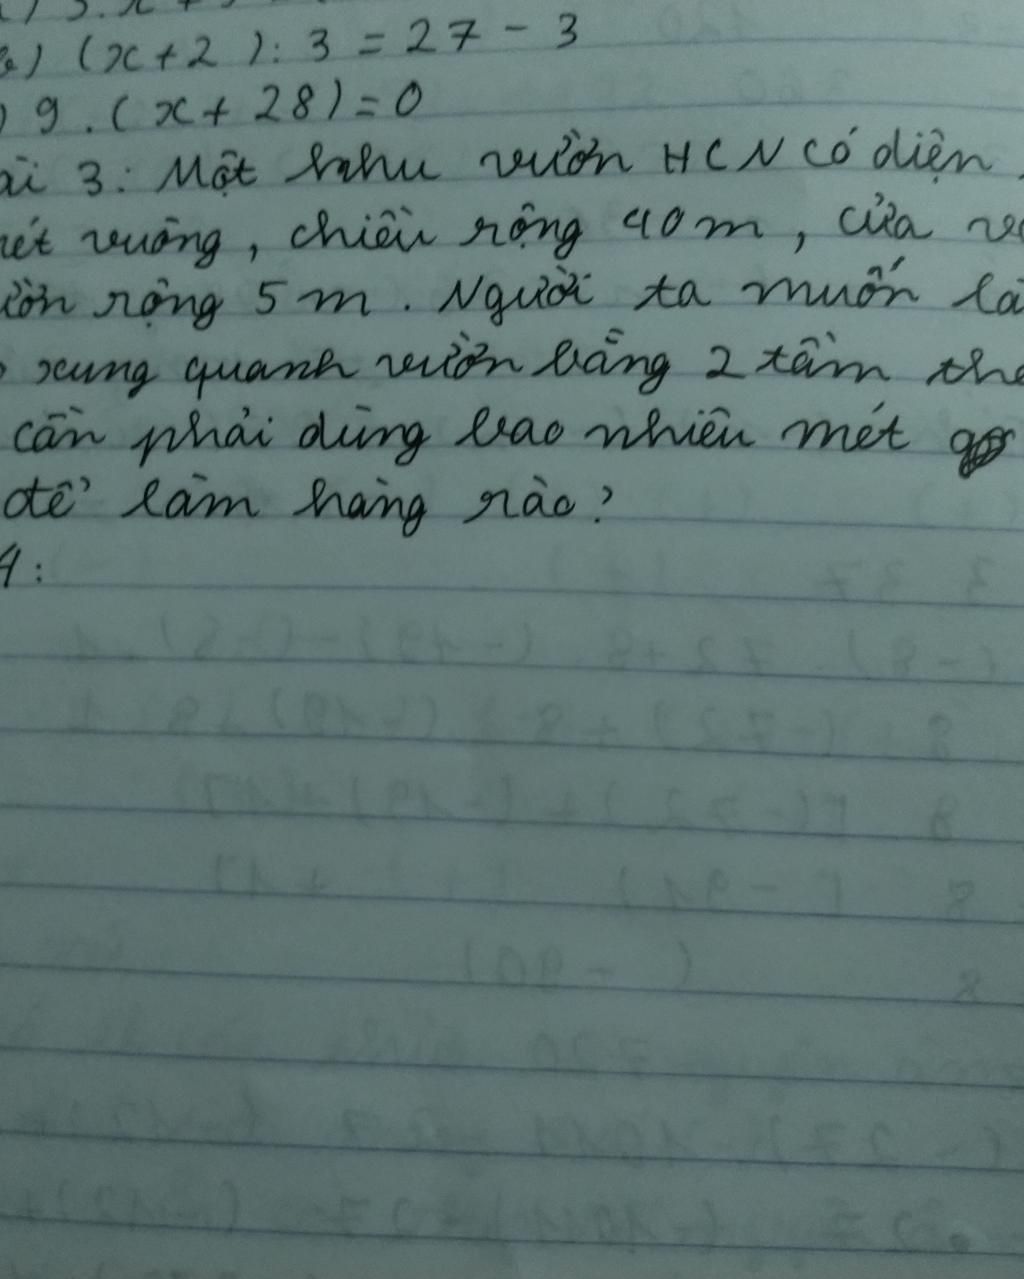 (x+2):3=27-3
9.(x+28)=0
ài 3: Một khu vườn HCN có diện
mét vuông, chiều rộng 40m, cửa
ườn rộng 5m. Người ta muốn
xung quanh vườn bằng 2 tầm
cần phải dùng bao nhiêu mét
để làm hàng rào?
4: